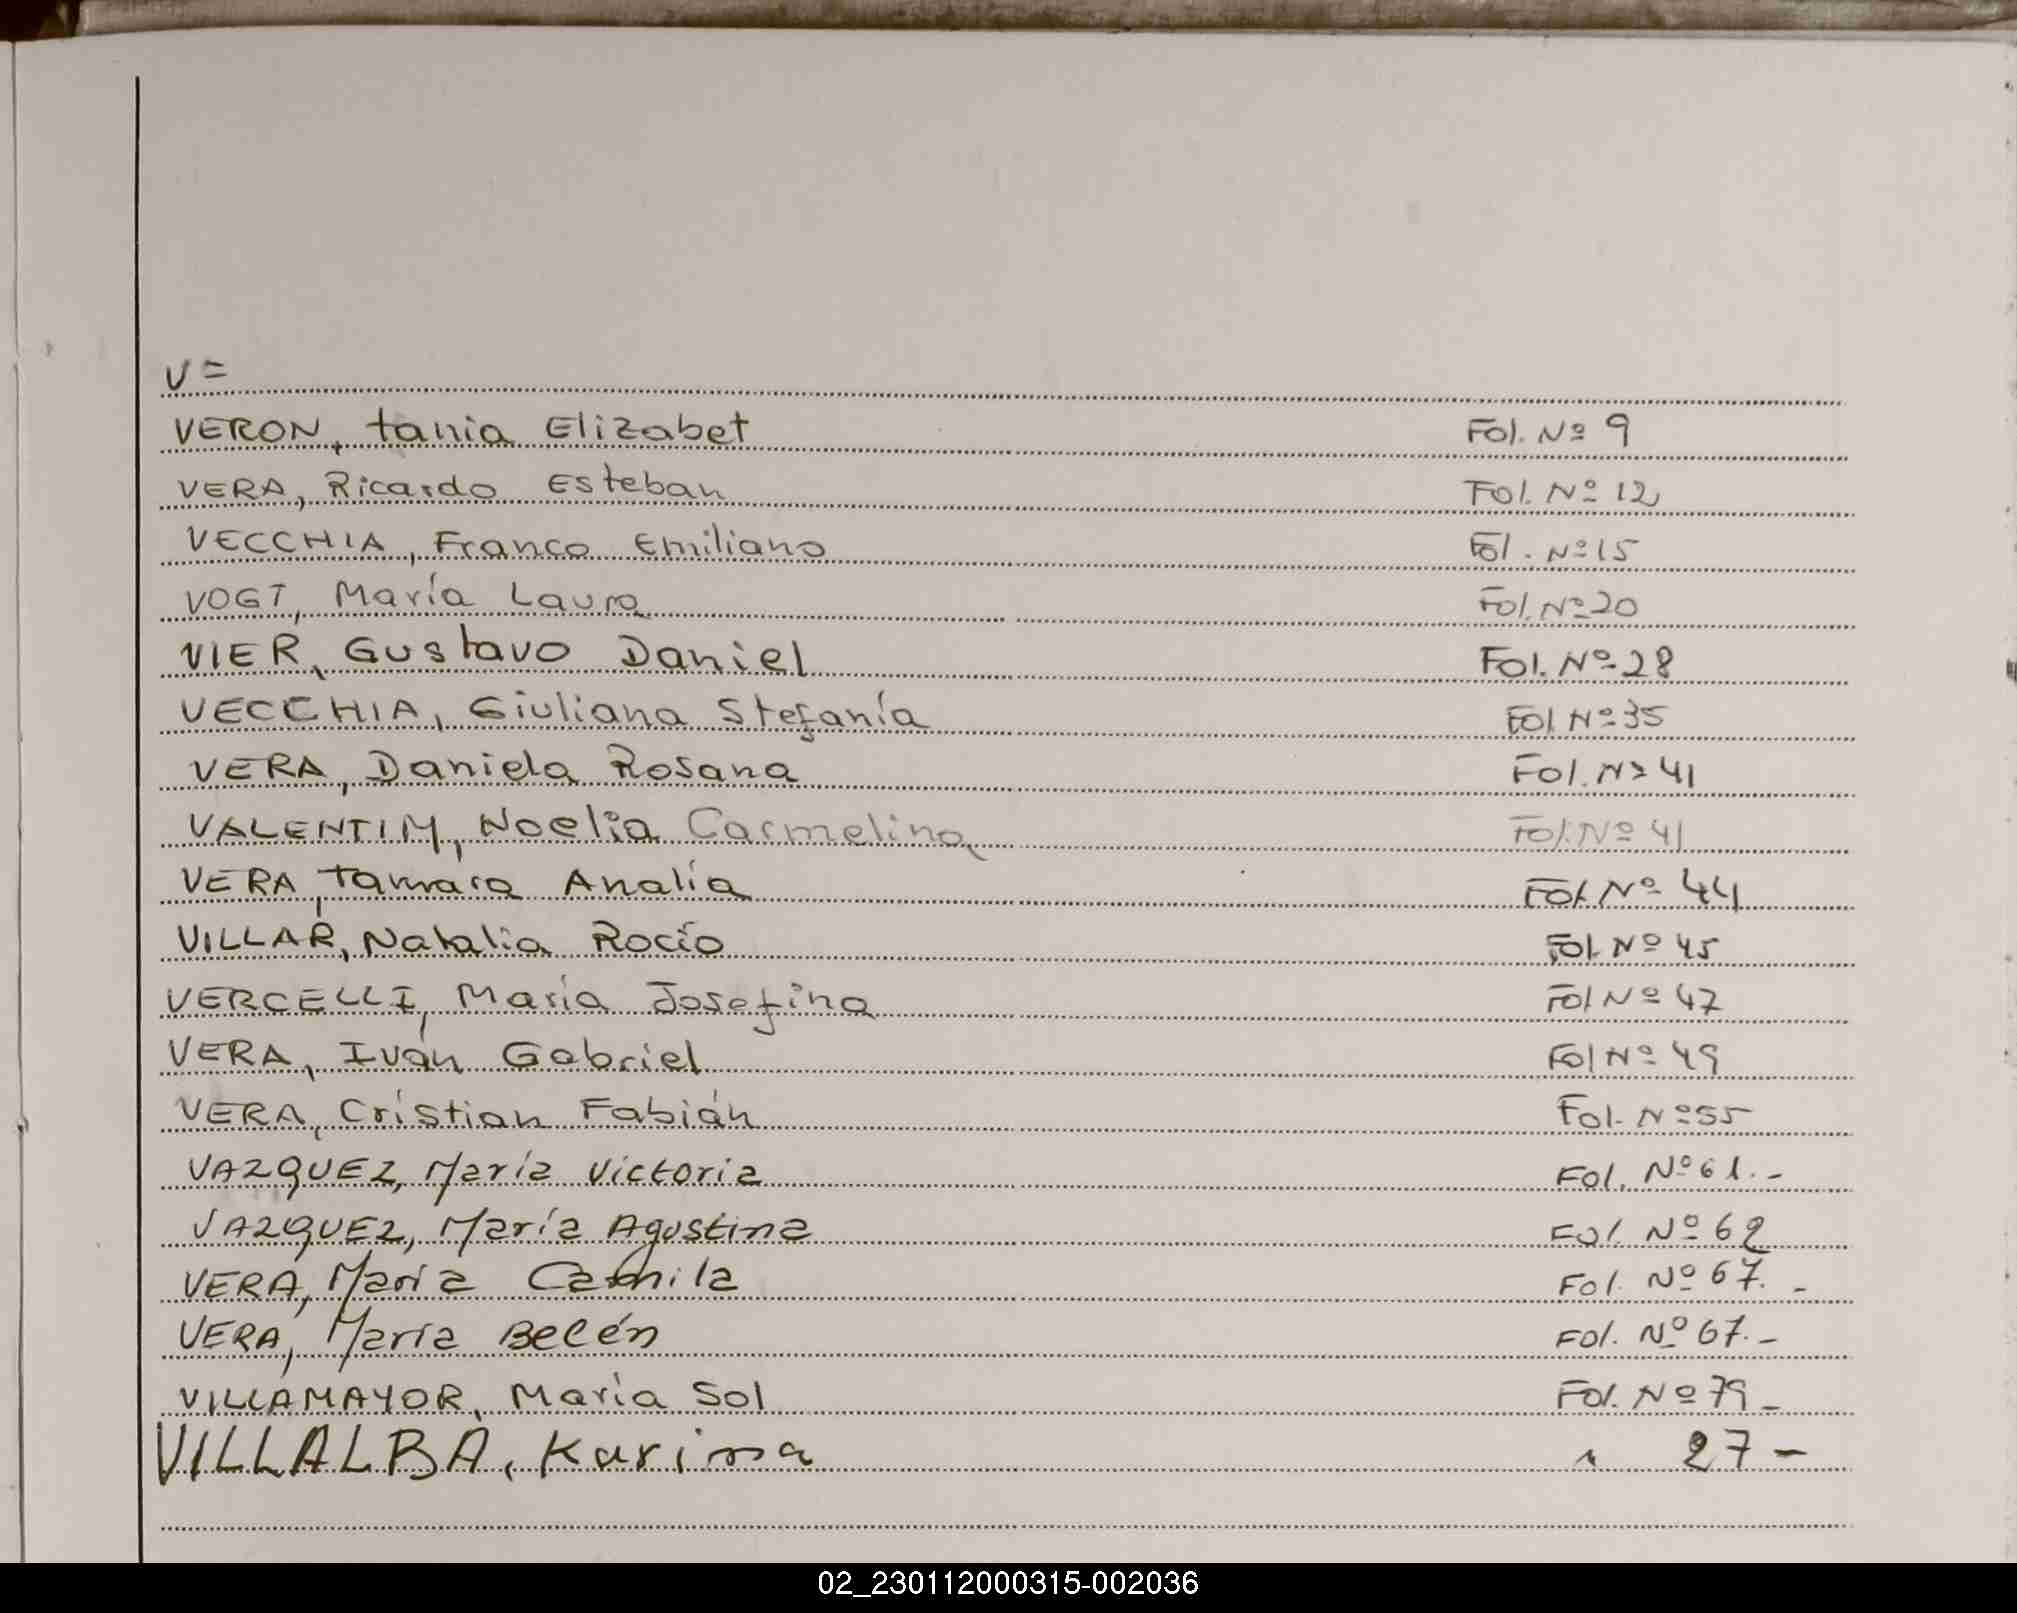 V =
VERON, tania Elizabet Fol. Nº 9
VERA, Ricardo Esteban Fol. Nº 12
VECCHIA, Franco Emiliano Fol. Nº 15
VOGT, María Laura Fol. Nº 20
VIER, Gustavo Daniel Fol. Nº 28
VECCHIA, Giuliana Stefanía Fol Nº 35
VERA, Daniela Rosana Fol. Nº 41
VALENTIM, Noelia Carmelina Fol. Nº 41
VERA, Tamara Analía Fol. Nº 44
VILLAR, Natalia Rocío Fol. Nº 45
VERCELLI, María Josefina Fol Nº 47
VERA, Iván Gabriel Fol Nº 49
VERA, Cristian Fabián Fol. Nº 55
VAZQUEZ, María Victoria Fol. Nº 61.-
VAZQUEZ, María Agustina Fol. Nº 62
VERA, María Camila Fol. Nº 67.-
VERA, María Belén Fol. Nº 67.-
VILLAMAYOR, María Sol Fol. Nº 79_
VILLALBA, Karina " 27-
02_230112000315-002036